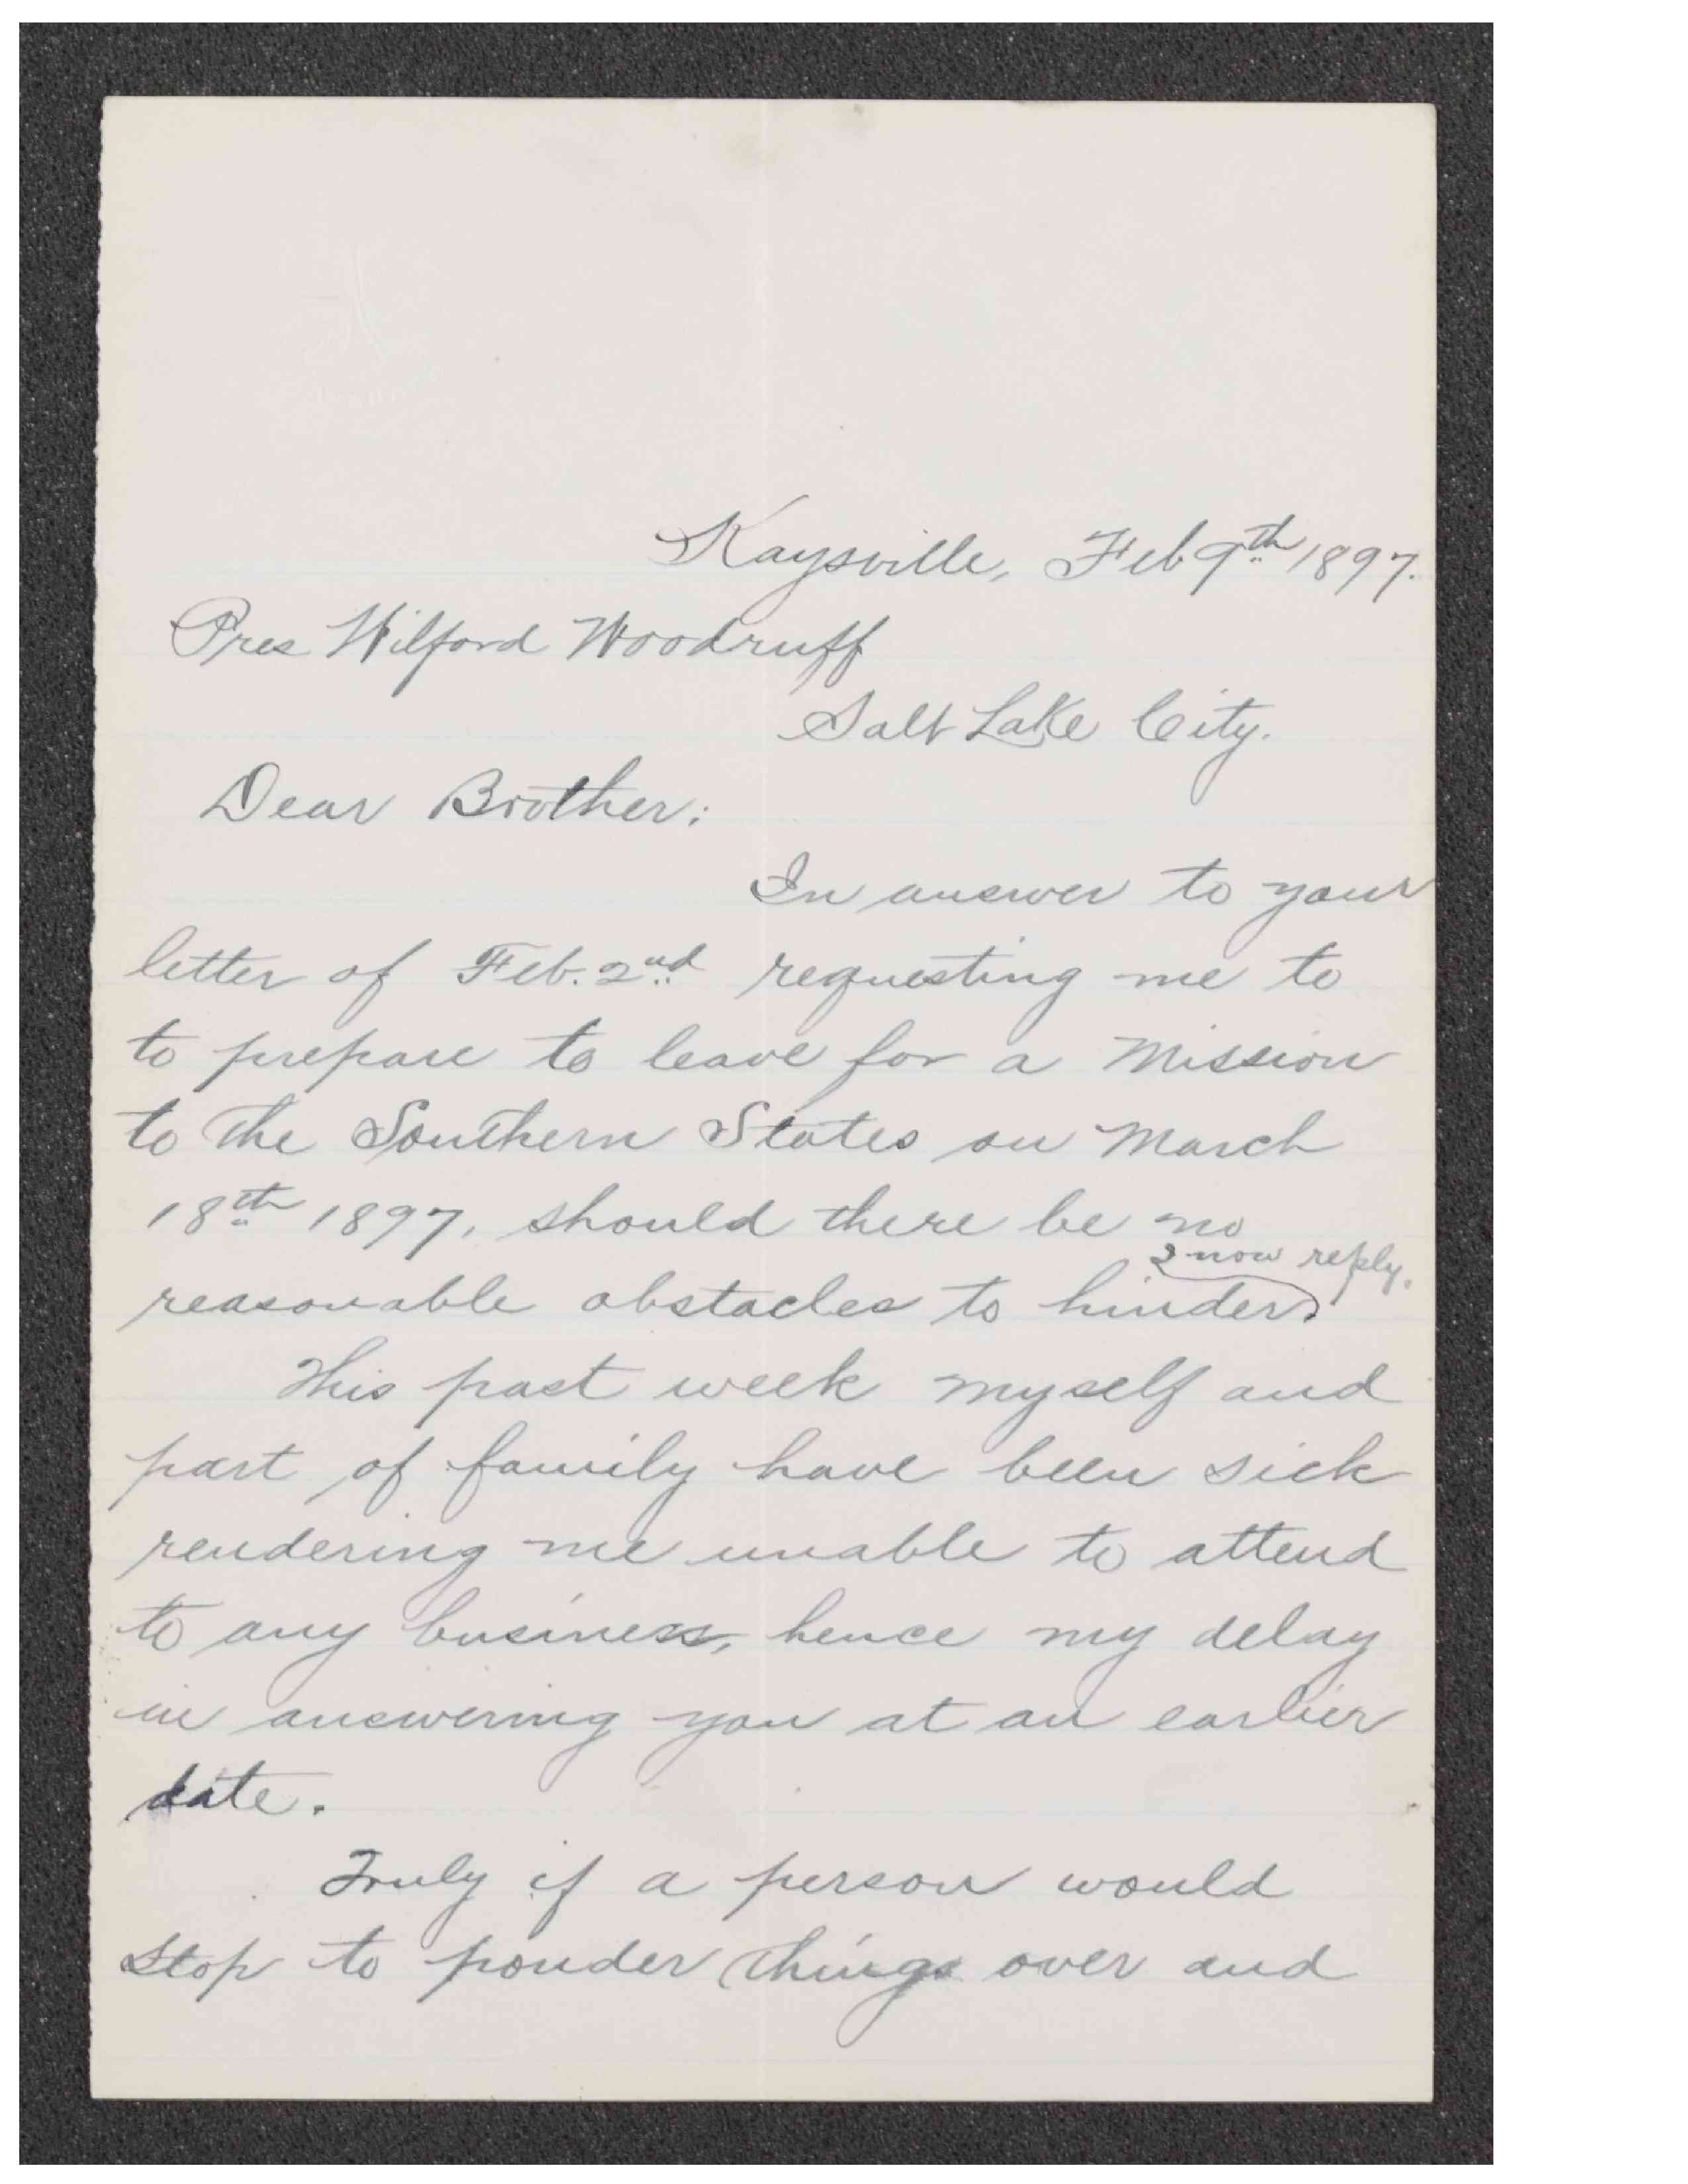 Kaysville, Feb 9th 1897.
Pres Wilford Woodruff
Salt Lake City.
Dear Brother:
In answer to your
letter of Feb. 2nd requesting me to
to prepare to leave for a Mission
to the Southern States on March
18th 1897, should there be no
I now reply.
reasonable obstacles to hinder.
This past week myself and
part of family have been sick
rendering me unable to attend
to any business, hence my delay
in answering you at an earlier
date.
Truly if a person would
stop to ponder things over and